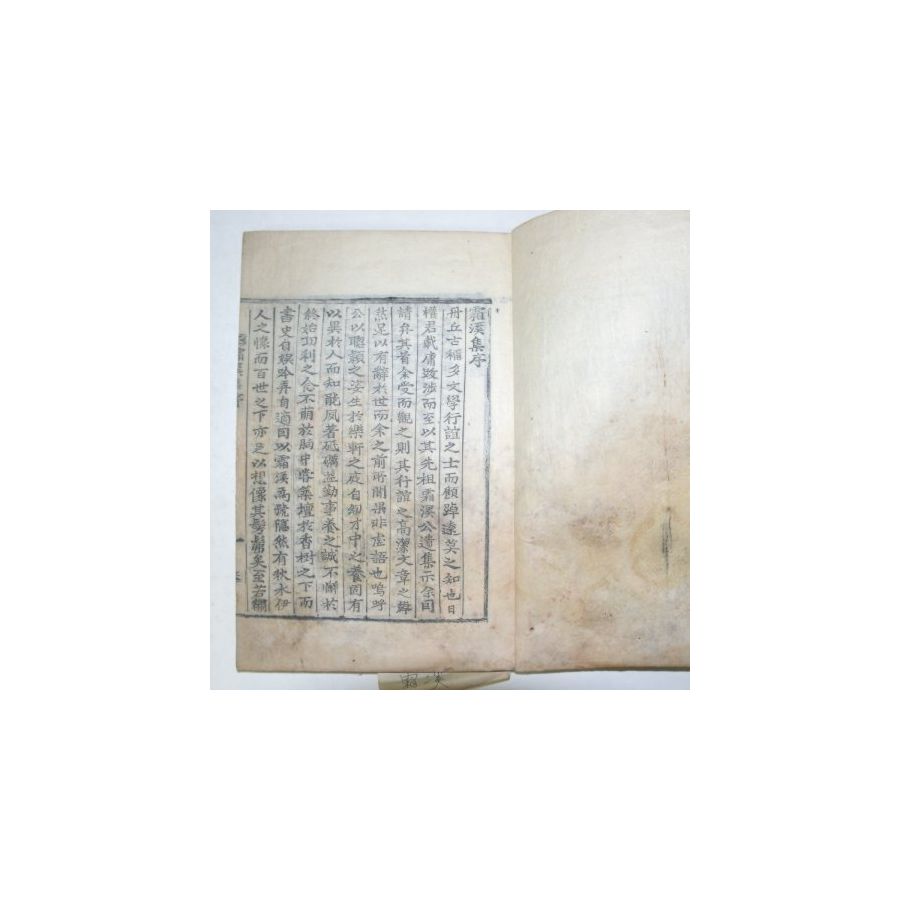 霜溪集序
丹丘古稱多文學行誼之士而顧踔遠莫之知也日
權君載庸跋涉而至以其先祖霜溪公遺集示余因
請弁其首余受而觀之則其行誼之高潔文章之
然足以有辭於世而余之前所聞果非虛語也嗚呼
公以聰穎之姿生於樂軒之庭自幼才中之養固有
以異於人而知能夙著砥礪益勤事養之誠不懈於
終始功利之念不萌於胸中嘗築壇於香樹之下而
書史自娛吟弄自適因以霜溪為號脩然有秋水伊
人之像而百世之下亦足以想像其髣髴矣至若
霜溪集序
霜溪